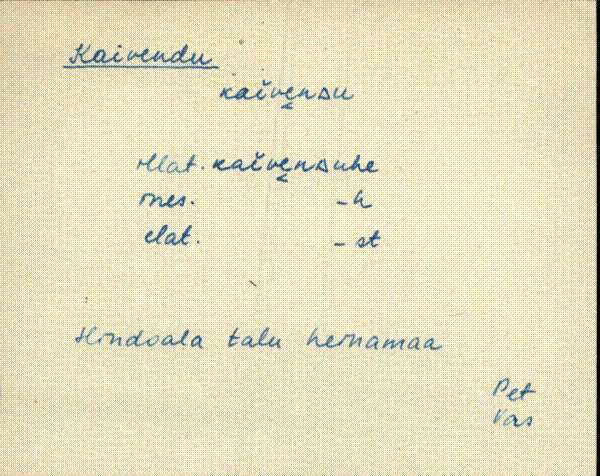 Kaivendu
kaĭvęnᴅu
illat. kaĭvęnᴅuhe
ines. -h
elat. - st
Hindoala talu heinamaa
Pet
Vas